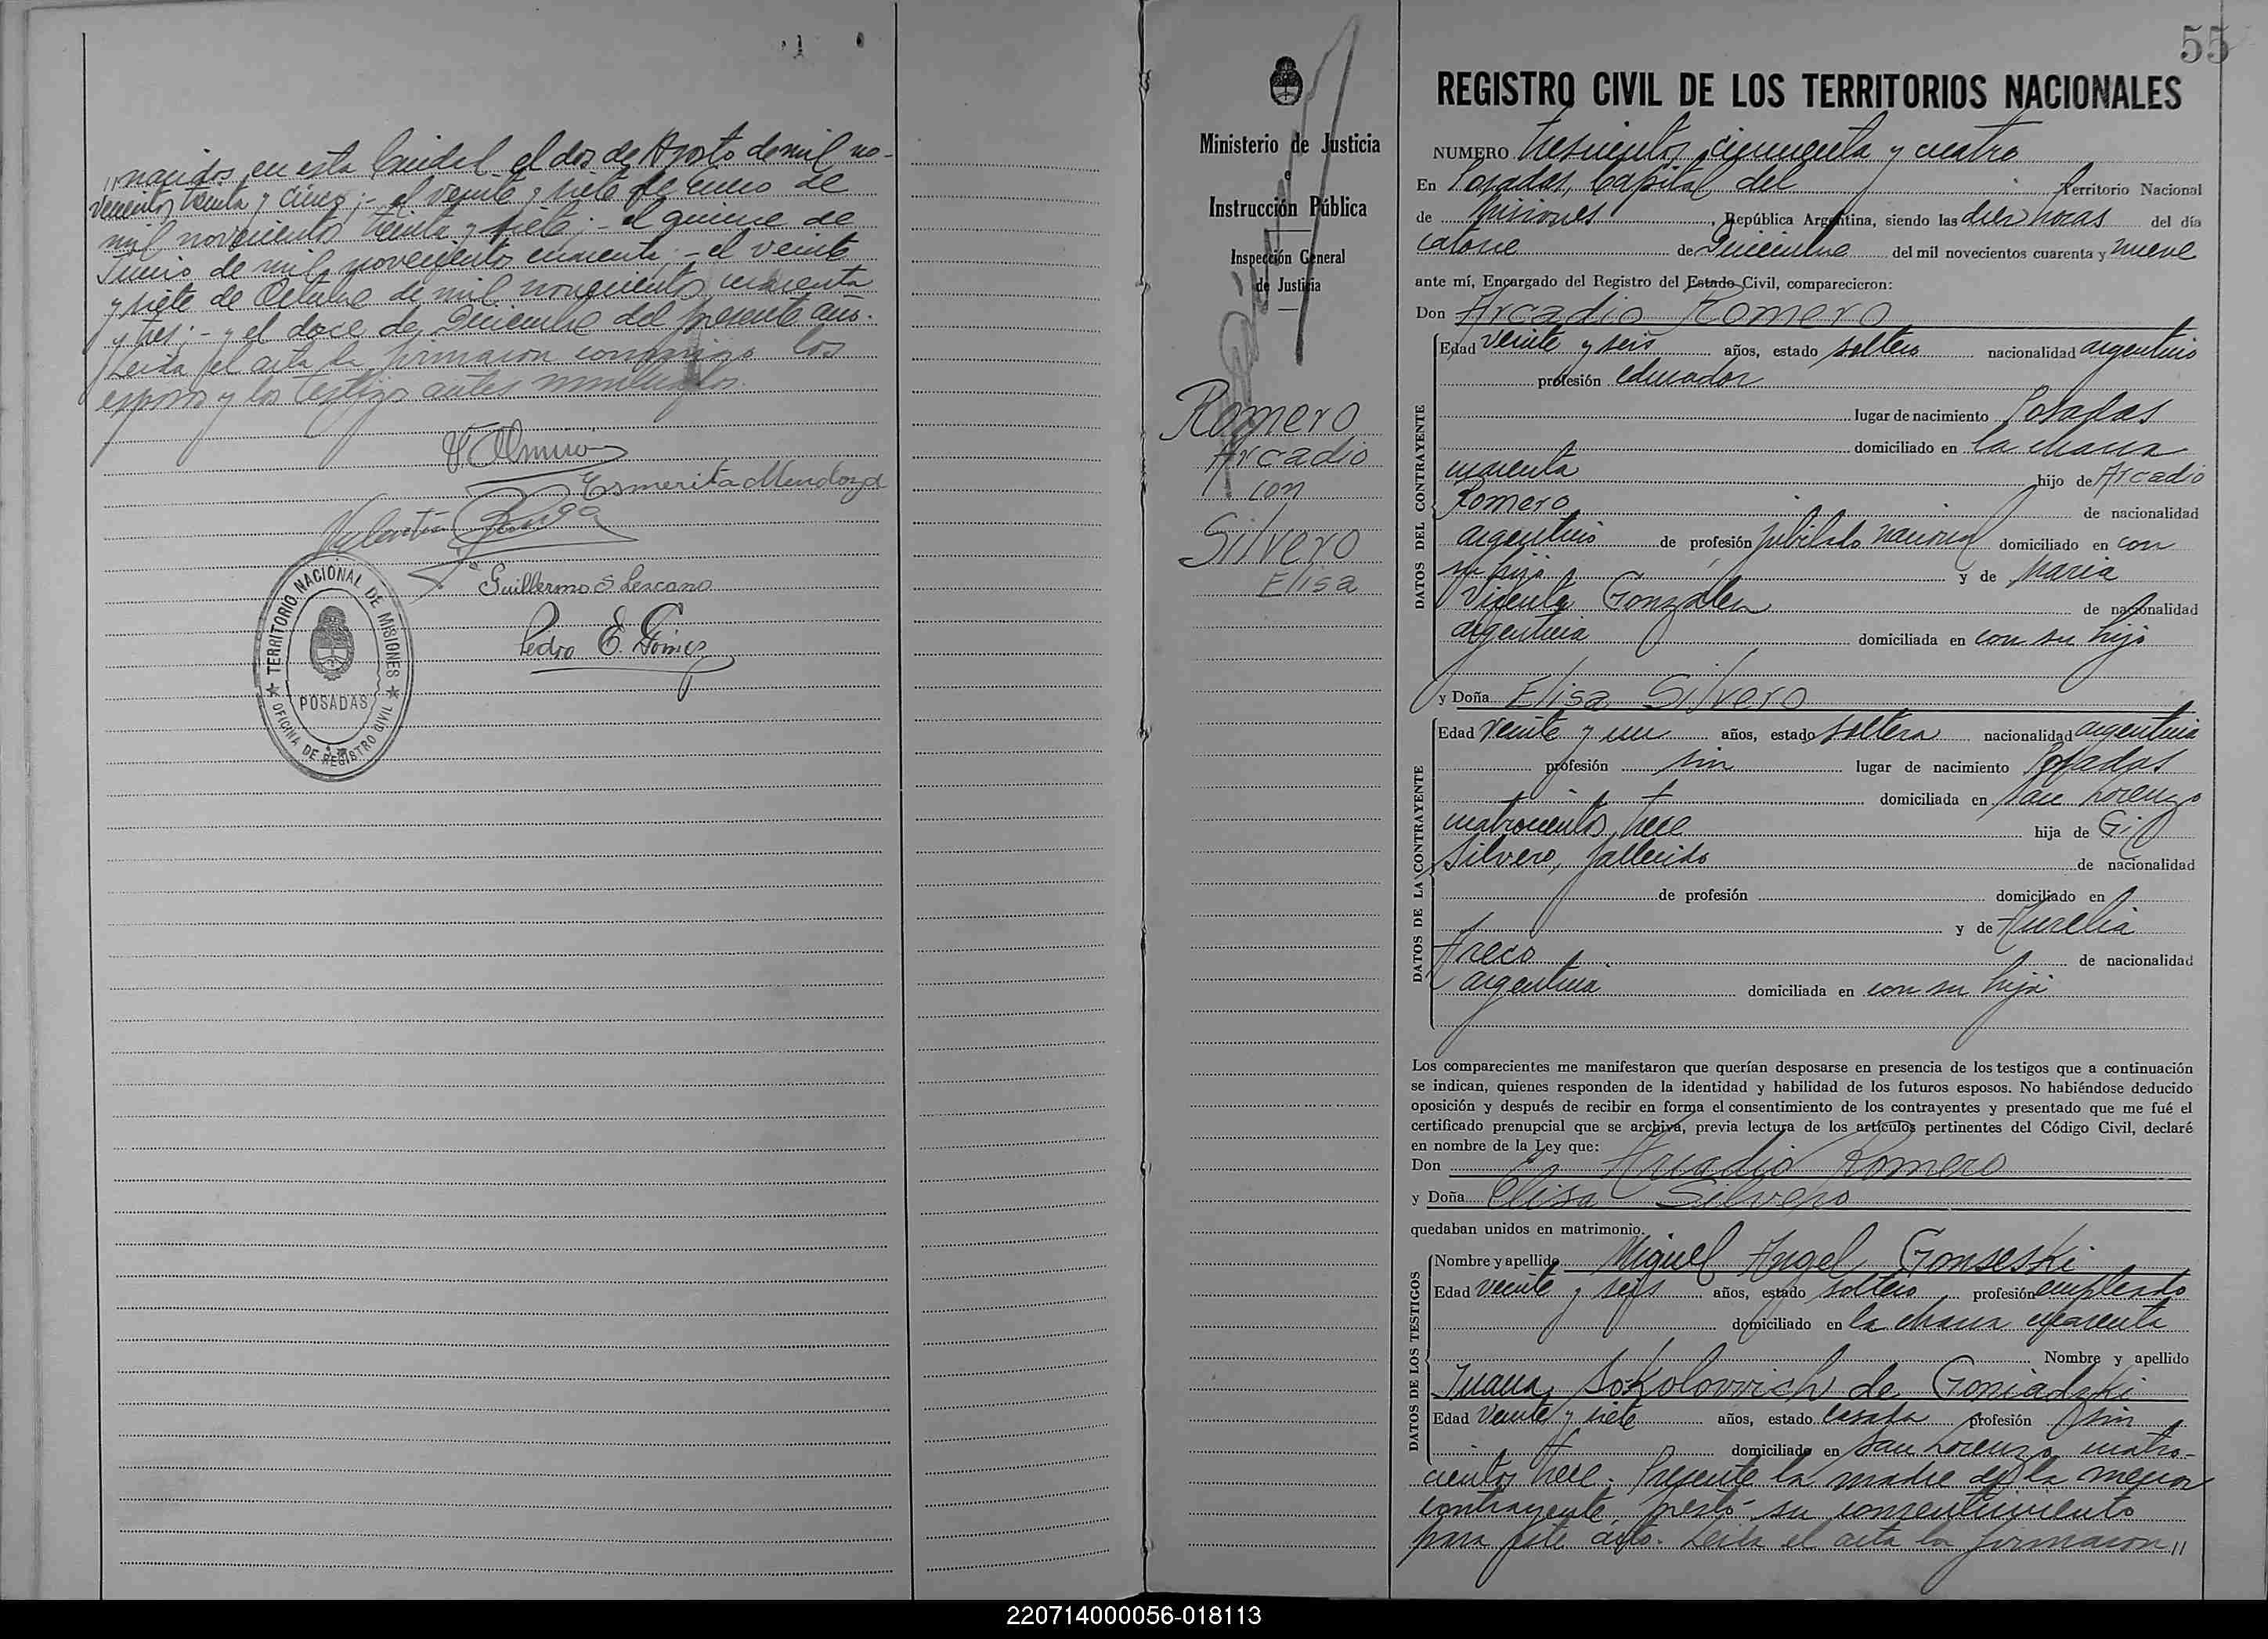 "nacidos en esta Ciudad el dos de Agosto de mil no-
vecientos treinta y cinco; - el veinte y siete de Enero de
mil novecientos treinta y siete; - el quince de
Junio de mil novecientos cuarenta; - el veinte
y siete de Octubre de mil novecientos cuarenta
y tres; - y el doce de Diciembre del presente año.
Leída el acta la firmaron conmigo los
esposos y los testigos antes nombrados.
Esmerita Mendoza
Valentín
Guillermo S Lescano
Pedro E. Gómez
TERRITORIO NACIONAL DE MISIONES
POSADAS
OFICINA DE REGISTRO CIVIL
Ministerio de Justicia
e
Instrucción Pública
Inspección General
de Justicia
Romero
Arcadio
con
Silvero
Elisa
55
REGISTRO CIVIL DE LOS TERRITORIOS NACIONALES
NUMERO trescientos cincuenta y cuatro
En Posadas, Capital del Territorio Nacional
de Misiones, República Argentina, siendo las diez horas del día
catorce de Diciembre del mil novecientos cuarenta y nueve
ante mí, Encargado del Registro del Estado Civil, comparecieron:
Don Arcadio Romero
DATOS DEL CONTRAYENTE
Edad veinte y seis años, estado soltero nacionalidad argentino
profesión educador
lugar de nacimiento Posadas
domiciliado en la chacra
cuarenta hijo de Arcadio
Romero de nacionalidad
argentino de profesión jubilado nacional domiciliado en con
su hijo y de María
Vicenta González de nacionalidad
argentina domiciliada en con su hijo
y Doña Elisa Silvero
DATOS DE LA CONTRAYENTE
Edad veinte y un años, estado soltera nacionalidad argentina
profesión sin lugar de nacimiento Posadas
domiciliada en San Lorenzo
cuatrocientos trece hija de Gil
Silvero, fallecido de nacionalidad
de profesión domiciliado en
y de Aurelia
Areco de nacionalidad
argentina domiciliada en con su hija
Los comparecientes me manifestaron que querían desposarse en presencia de los testigos que a continuación
se indican, quienes responden de la identidad y habilidad de los futuros esposos. No habiéndose deducido
oposición y después de recibir en forma el consentimiento de los contrayentes y presentado que me fué el
certificado prenupcial que se archiva, previa lectura de los artículos pertinentes del Código Civil, declaré
en nombre de la Ley que:
Don Arcadio Romero
y Doña Elisa Silvero
quedaban unidos en matrimonio.
DATOS DE LOS TESTIGOS
Nombre y apellido Miguel Angel Gonseski
Edad veinte y seis años, estado soltero profesión empleado
domiciliado en la chacra cuarenta
Nombre y apellido
Juana Sokolovvich de Goniadzki
Edad veinte y siete años, estado casada profesión sin
domiciliado en San Lorenzo cuatro-
cientos trece. Presente la madre de la menor
contrayente, prestó su consentimiento
para este acto. Leída el acta la firmaron "
220714000056-018113